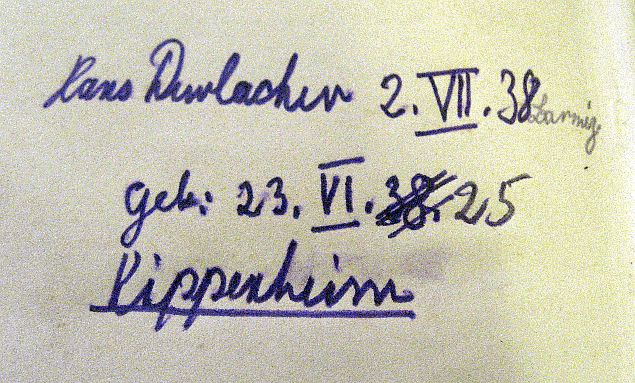 Hans Durlacher 2. VII. 38
geb: 23. VI. 38. 25
Kippenheim